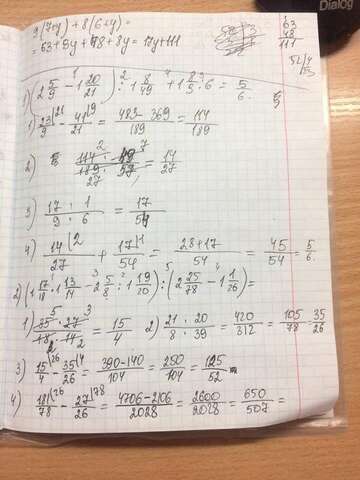 9(7+y)+8(6+y)=
=63+9y+48+8y=17y+111
63
48
111
1) (2 5/9 - 1 20/21) : 1 8/49 + 1 8/9 : 6 = 5/6
1) 23/9 |21 - 41/21 |9 = 483-369/189 = 114/189
2) 114 · 49/189 · 57 = 14/27
3) 17 : 1/9 : 6 = 17/54
4) 14/27 |2 + 17/54 |1 = 28+17/54 = 45/54 = 5/6
2) (1 17/18 · 1 13/14 - 2 5/8 : 1 19/20) : (2 25/78 - 1 1/26) =
1) 35 · 27/18 · 14 = 15/4 2) 21 : 20/8 : 39 = 420/312 = 105/78 35/26
3) 15/4 |26 - 35/26 |4 = 390-140/104 = 250/104 = 125/52
4) 181/78 |26 - 27/26 |78 = 4706-2106/2028 = 2600/2028 = 650/507 =
Dialog